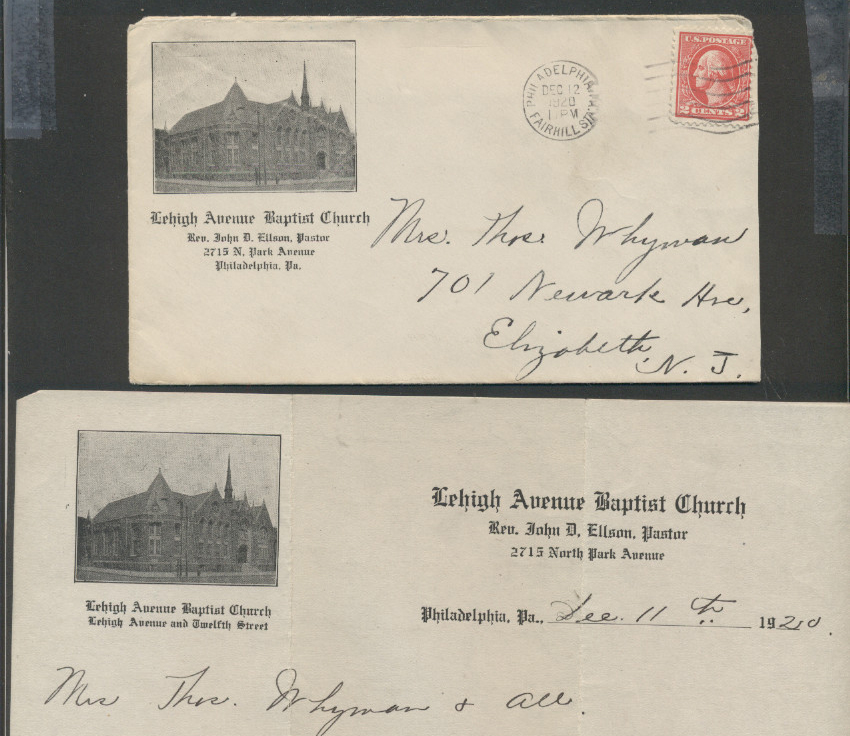 Lehigh Avenue Baptist Church
Rev. John D. Ellson, Pastor
2715 N. Park Avenue
Philadelphia, Pa.
PHILADELPHIA, PA.
DEC 12
1920
PM
FAIRHILL STA.
U.S. POSTAGE
2 CENTS 2
Mrs. Thos. Whyman
701 Newark Ave,
Elizabeth,
N. J.
Lehigh Avenue Baptist Church
Lehigh Avenue and Twelfth Street
Lehigh Avenue Baptist Church
Rev. John D. Ellson, Pastor
2715 North Park Avenue
Philadelphia, Pa., Dec. 11th 1920.
Mrs Thos. Whyman & all.